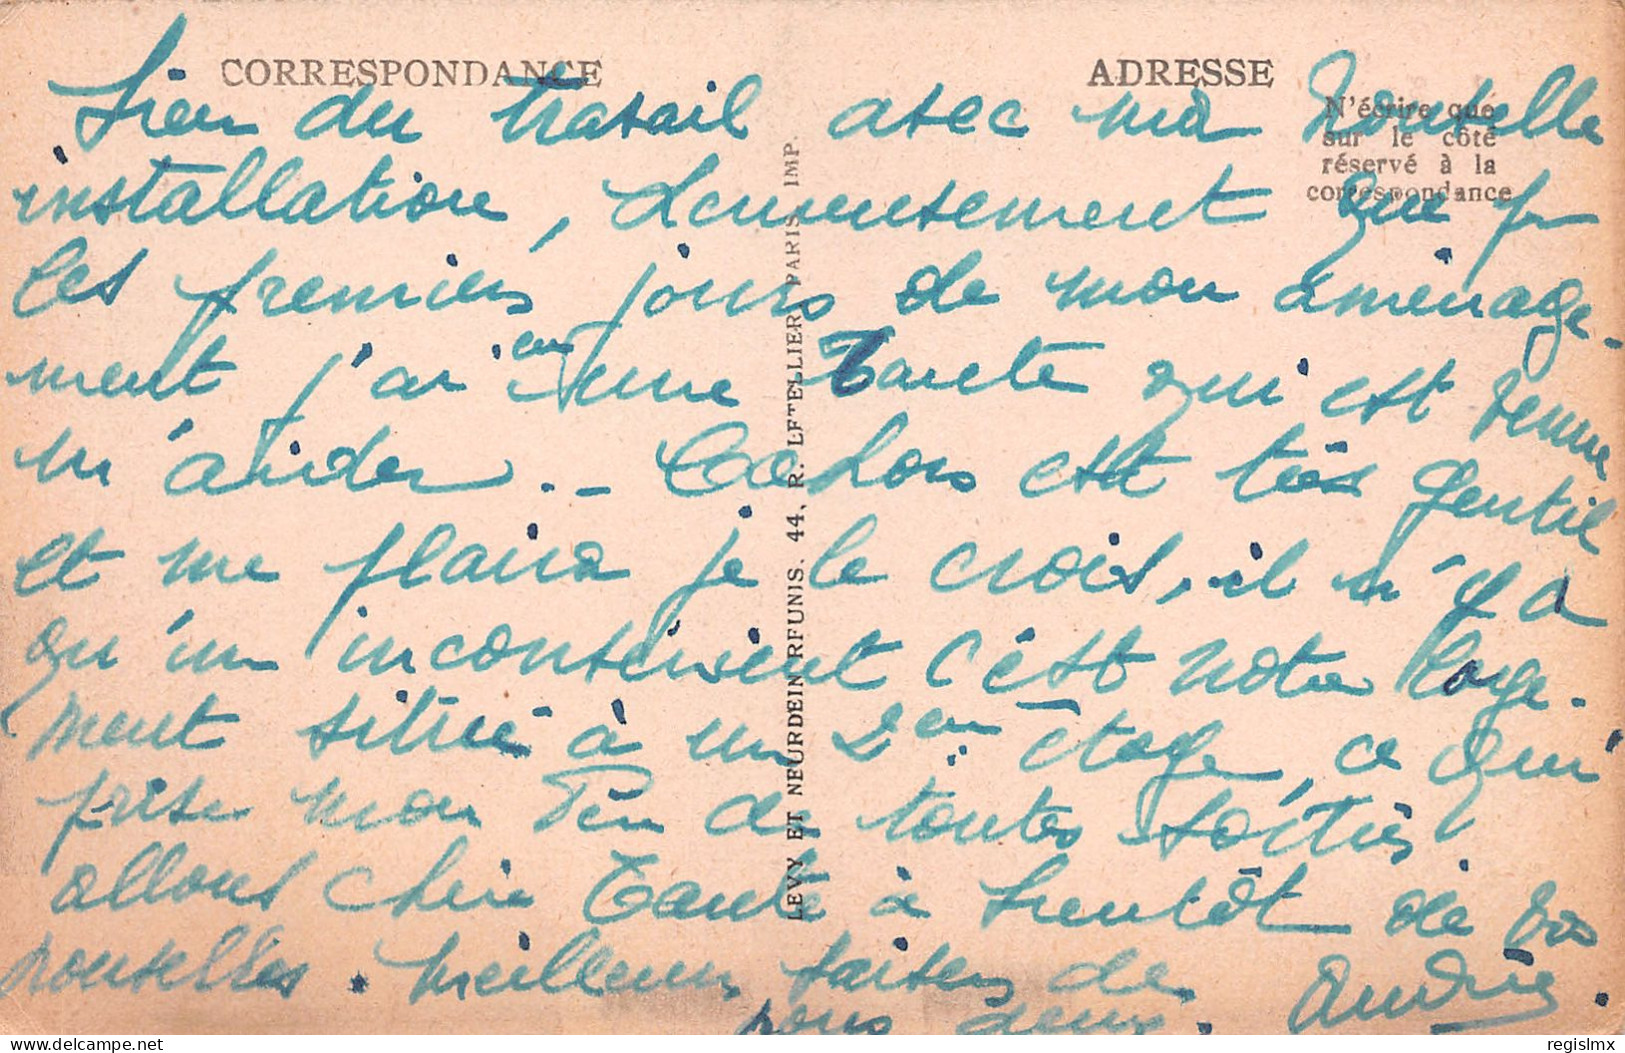 CORRESPONDANCE
ADRESSE
N'écrire que
sur le côté
réservé à la
correspondance
bien du travail avec ma nouvelle
installation, heureusement que p^r
les premiers jours de mon aménage-
ment j'ai eu une Tante qui est venue
m'aider. _ Cahors est très gentil
et me plaira je le crois, il n'y a
qu'un inconvénient c'est notre loge-
ment situé à un 2em étage, ce qui
prive mon de toutes sorties
allons chère Tante à bientôt de vos
nouvelles. Meilleurs baisers de
nous deux. Andrée.
LEVY ET NEURDEIN RÉUNIS. 44, R. LETELLIER, PARIS IMP.
delcampe.net
regislmx